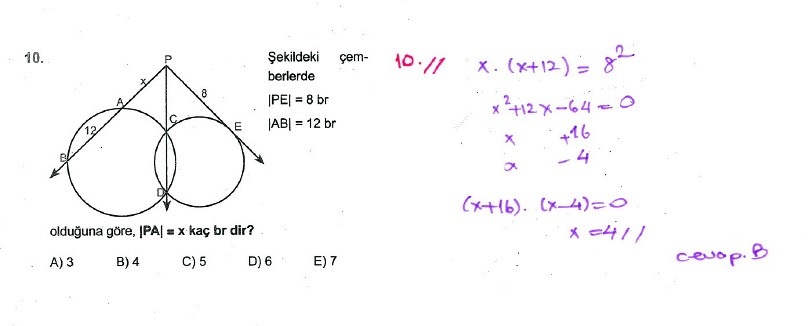 10.
Şekildeki çem-
berlerde
|PE| = 8 br
|AB| = 12 br
P
x
8
A
12
C
E
B
D
olduğuna göre, |PA| = x kaç br dir?
A) 3 B) 4 C) 5 D) 6 E) 7
10.//
x . (x+12) = 8²
x²+12x-64=0
x +16
x -4
(x+16). (x-4)=0
x =4//
cevap.B